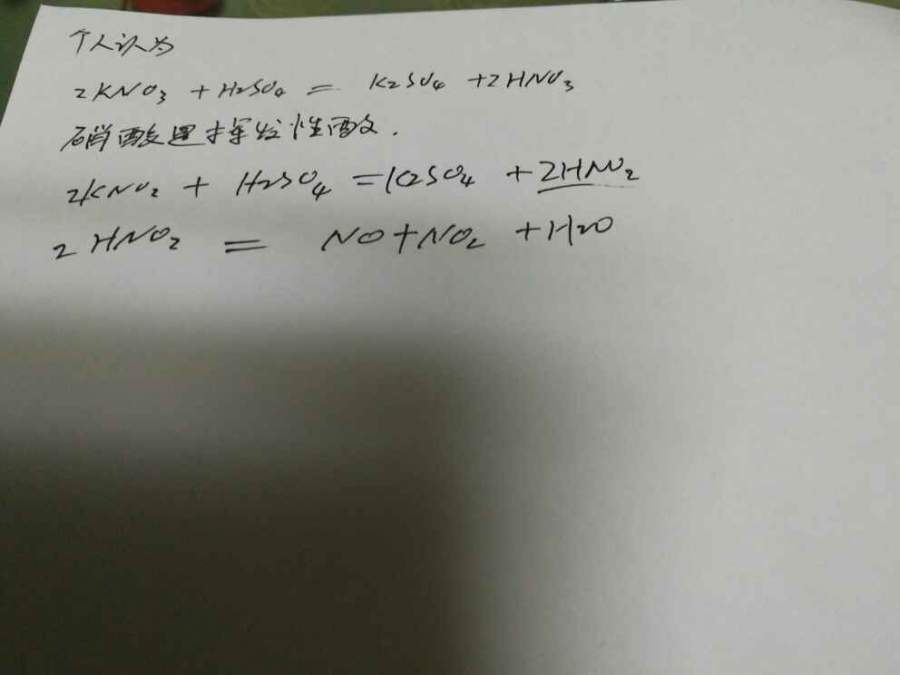 个人认为
2KNO3 + H2SO4 = K2SO4 + 2HNO3
硝酸是挥发性酸.
2KNO2 + H2SO4 = K2SO4 + 2HNO2
2HNO2 = NO + NO2 + H2O